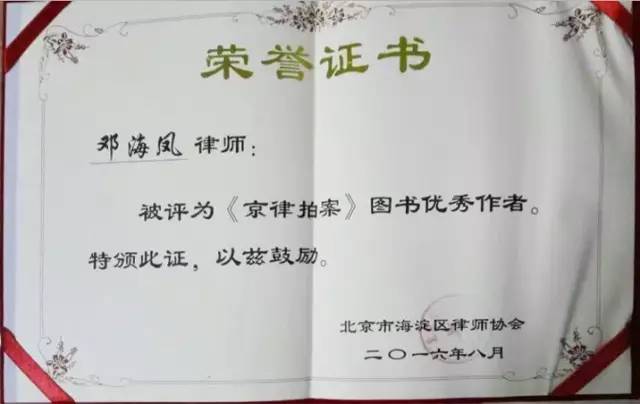 荣誉证书
邓海凤律师：
被评为《京律拍案》图书优秀作者。
特颁此证，以兹鼓励。
北京市海淀区律师协会
二〇一六年八月